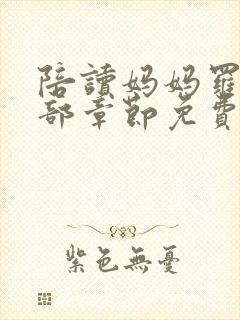 陪讀媽媽羅
部章節免費
紫色無憂